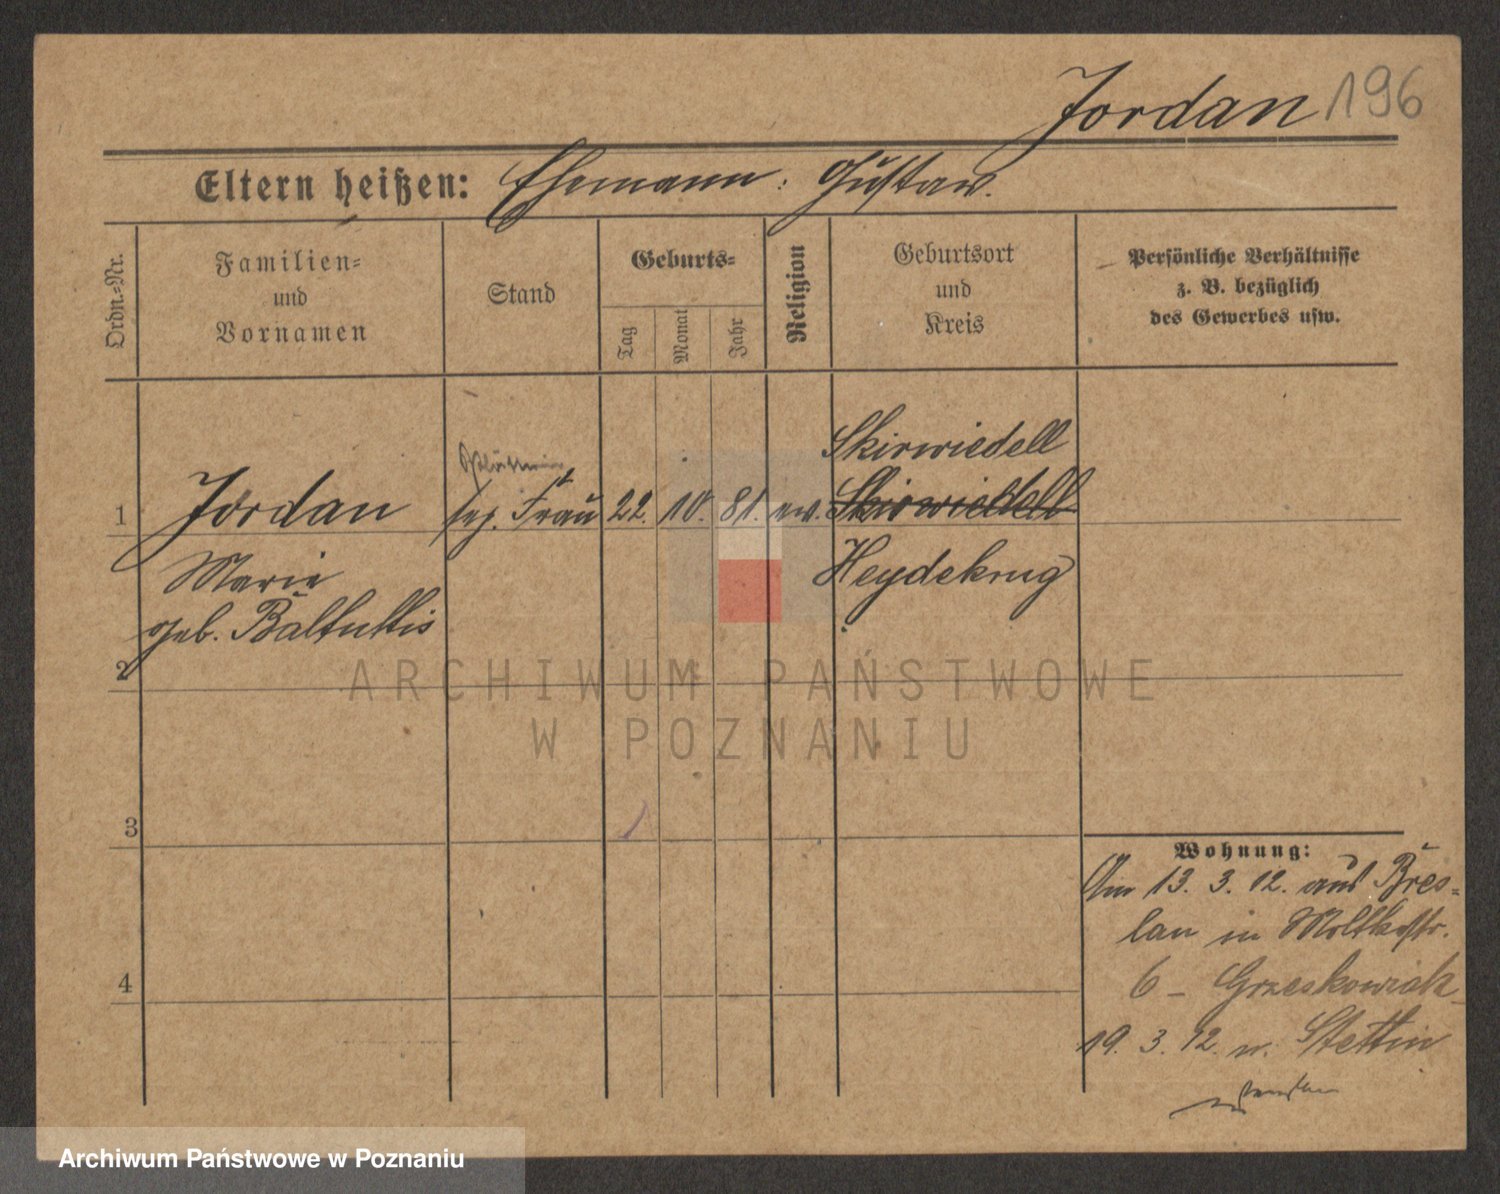 Jordan 196
Eltern heißen: Ehemann: Gustav.
Ordn.-Nr.
Familien-
und
Vornamen
Stand
Geburts-
Tag
Monat
Jahr
Religion
Geburtsort
und
Kreis
Persönliche Verhältnisse
z. B. bezüglich
des Gewerbes usw.
Skirwiedell
1 Jordan sep. Frau 22. 10. 81. ev. Skirwiedell
Marie Heydekrug
geb. Baltuttis
2
3
4
Wohnung:
Am 13. 3. 12. aus Bres-
lau in Moltkestr.
6 - Grzeskowiak
19. 3. 12. n. Stettin
ARCHIWUM PAŃSTWOWE
W POZNANIU
Archiwum Państwowe w Poznaniu